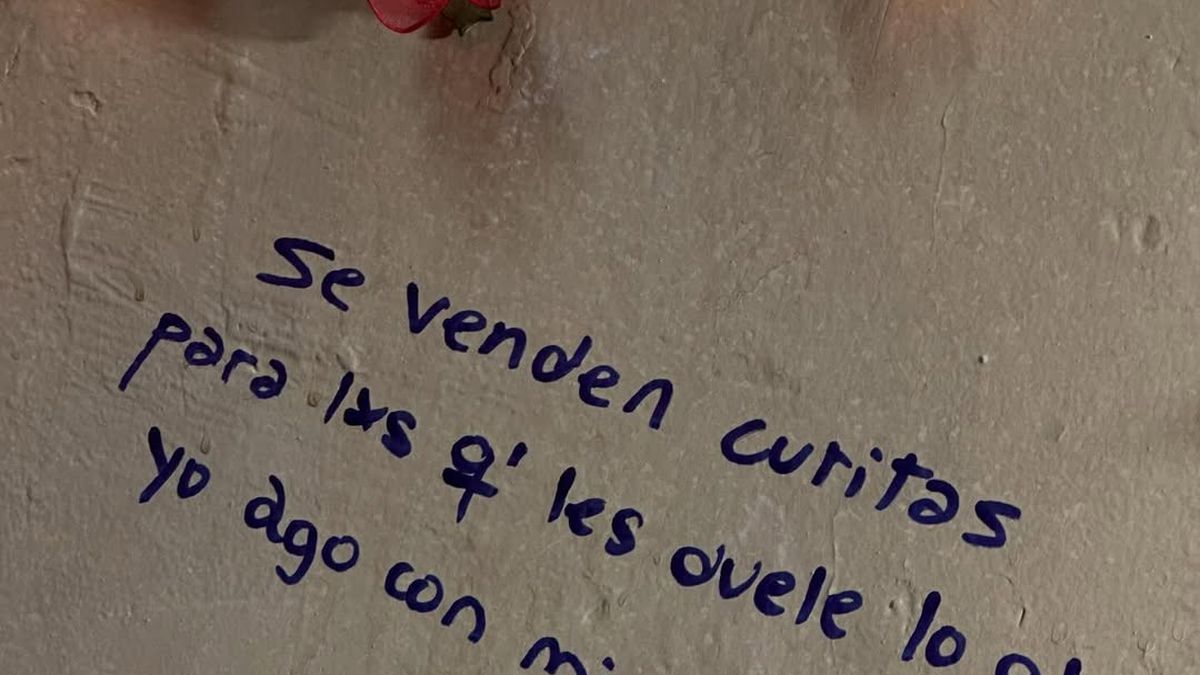 Se venden curitas
para lxs q' les duele lo q'
yo ago con mi